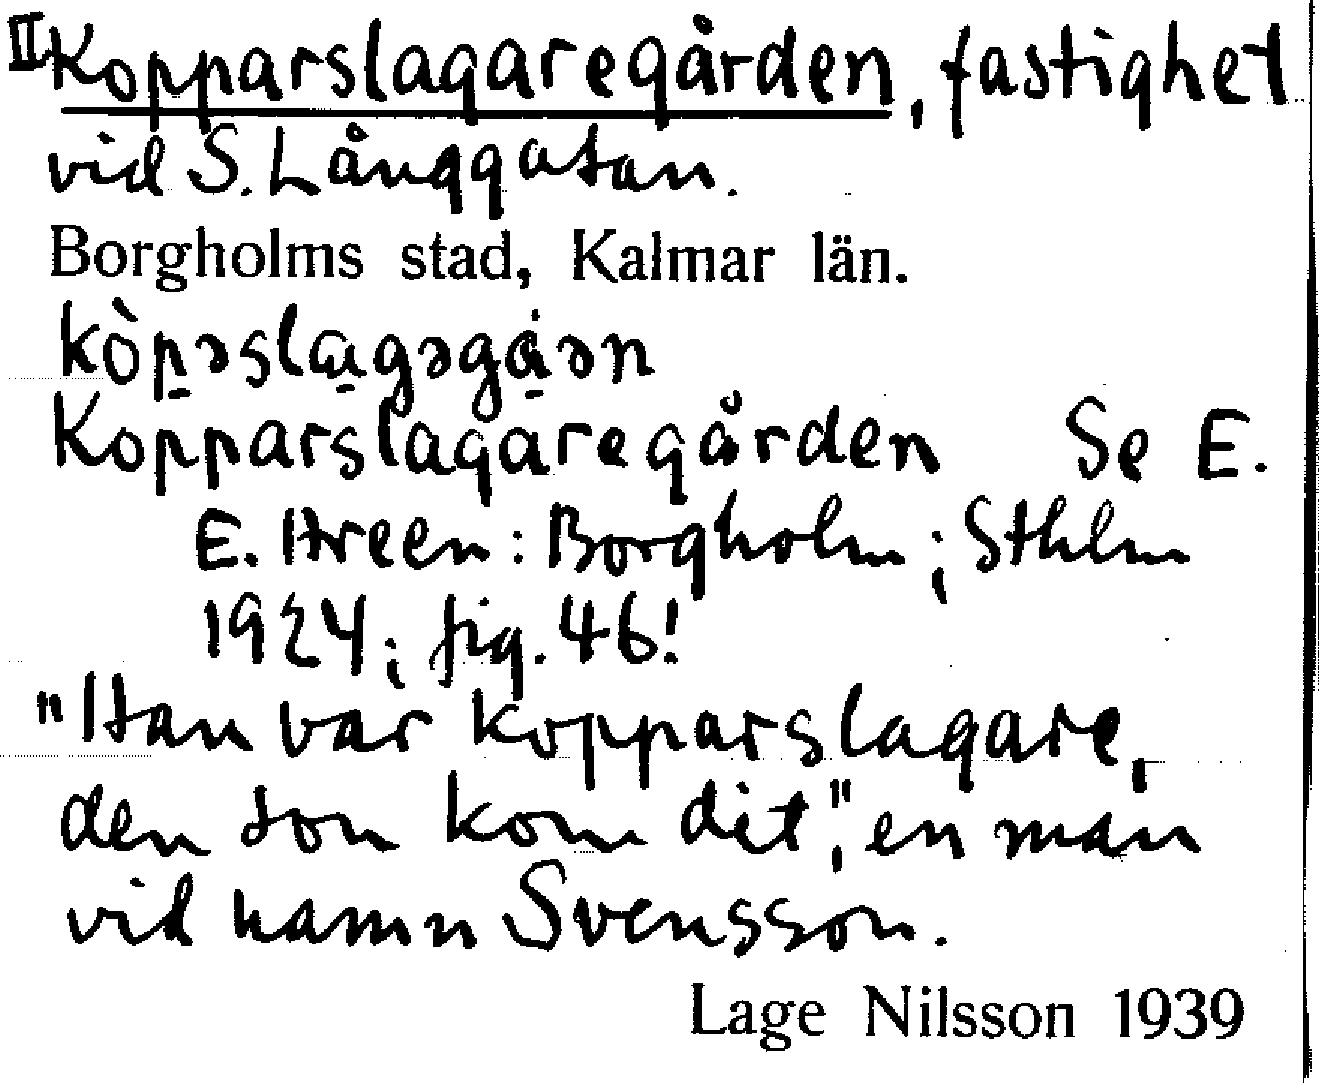 II Kopparslagaregården, fastighet
vid S. Långgatan.
Borgholms stad, Kalmar län.
kòp̱əsla̱gəgå̱ən
Kopparslagaregården Se E.
E. Hreen: Borgholm; Sthlm
1924; fig. 46!
"Han var kopparslagare,
den som kom dit", en man
vid namn Svensson.
Lage Nilsson 1939